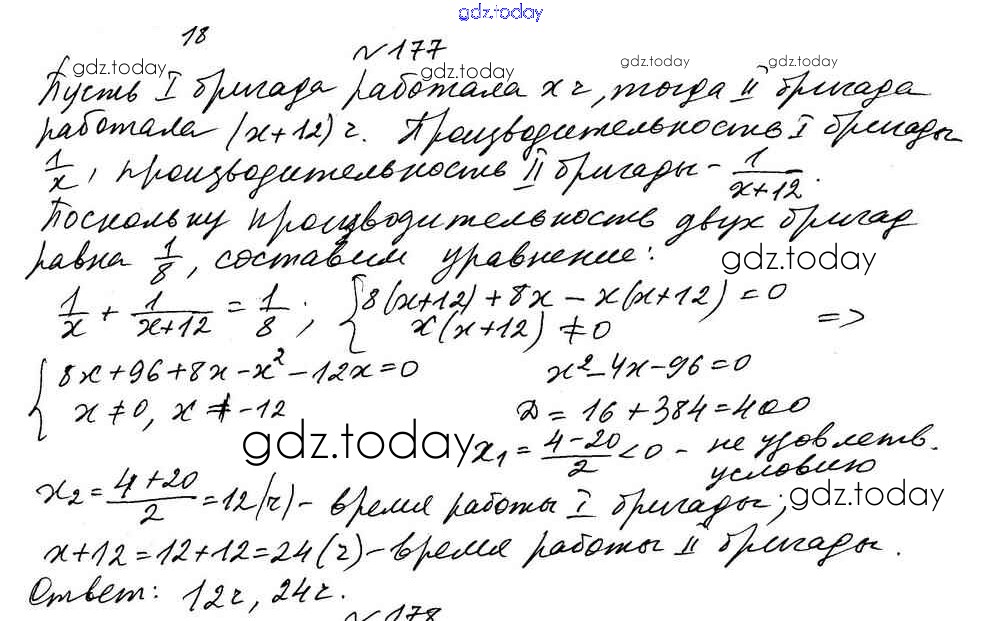 gdz.today
18
№177
gdz.today gdz.today gdz.today gdz.today
Пусть I бригада работала x ч, тогда II бригада
работала (x+12) ч. Производительность I бригады
1/x, производительность II бригады - 1/(x+12).
Поскольку производительность двух бригад
равна 1/8, составим уравнение:
gdz.today
1/x + 1/(x+12) = 1/8; { 8(x+12)+8x-x(x+12)=0
x(x+12)≠0 =>
{ 8x+96+8x-x²-12x=0 x²-4x-96=0
x≠0, x≠-12 D=16+384=400
gdz.today
x₁=(4-20)/2<0 - не удовлетв.
условию
x₂=(4+20)/2=12(ч) - время работы I бригады;
gdz.today
x+12=12+12=24(ч) - время работы II бригады.
Ответ: 12ч, 24ч.
№178